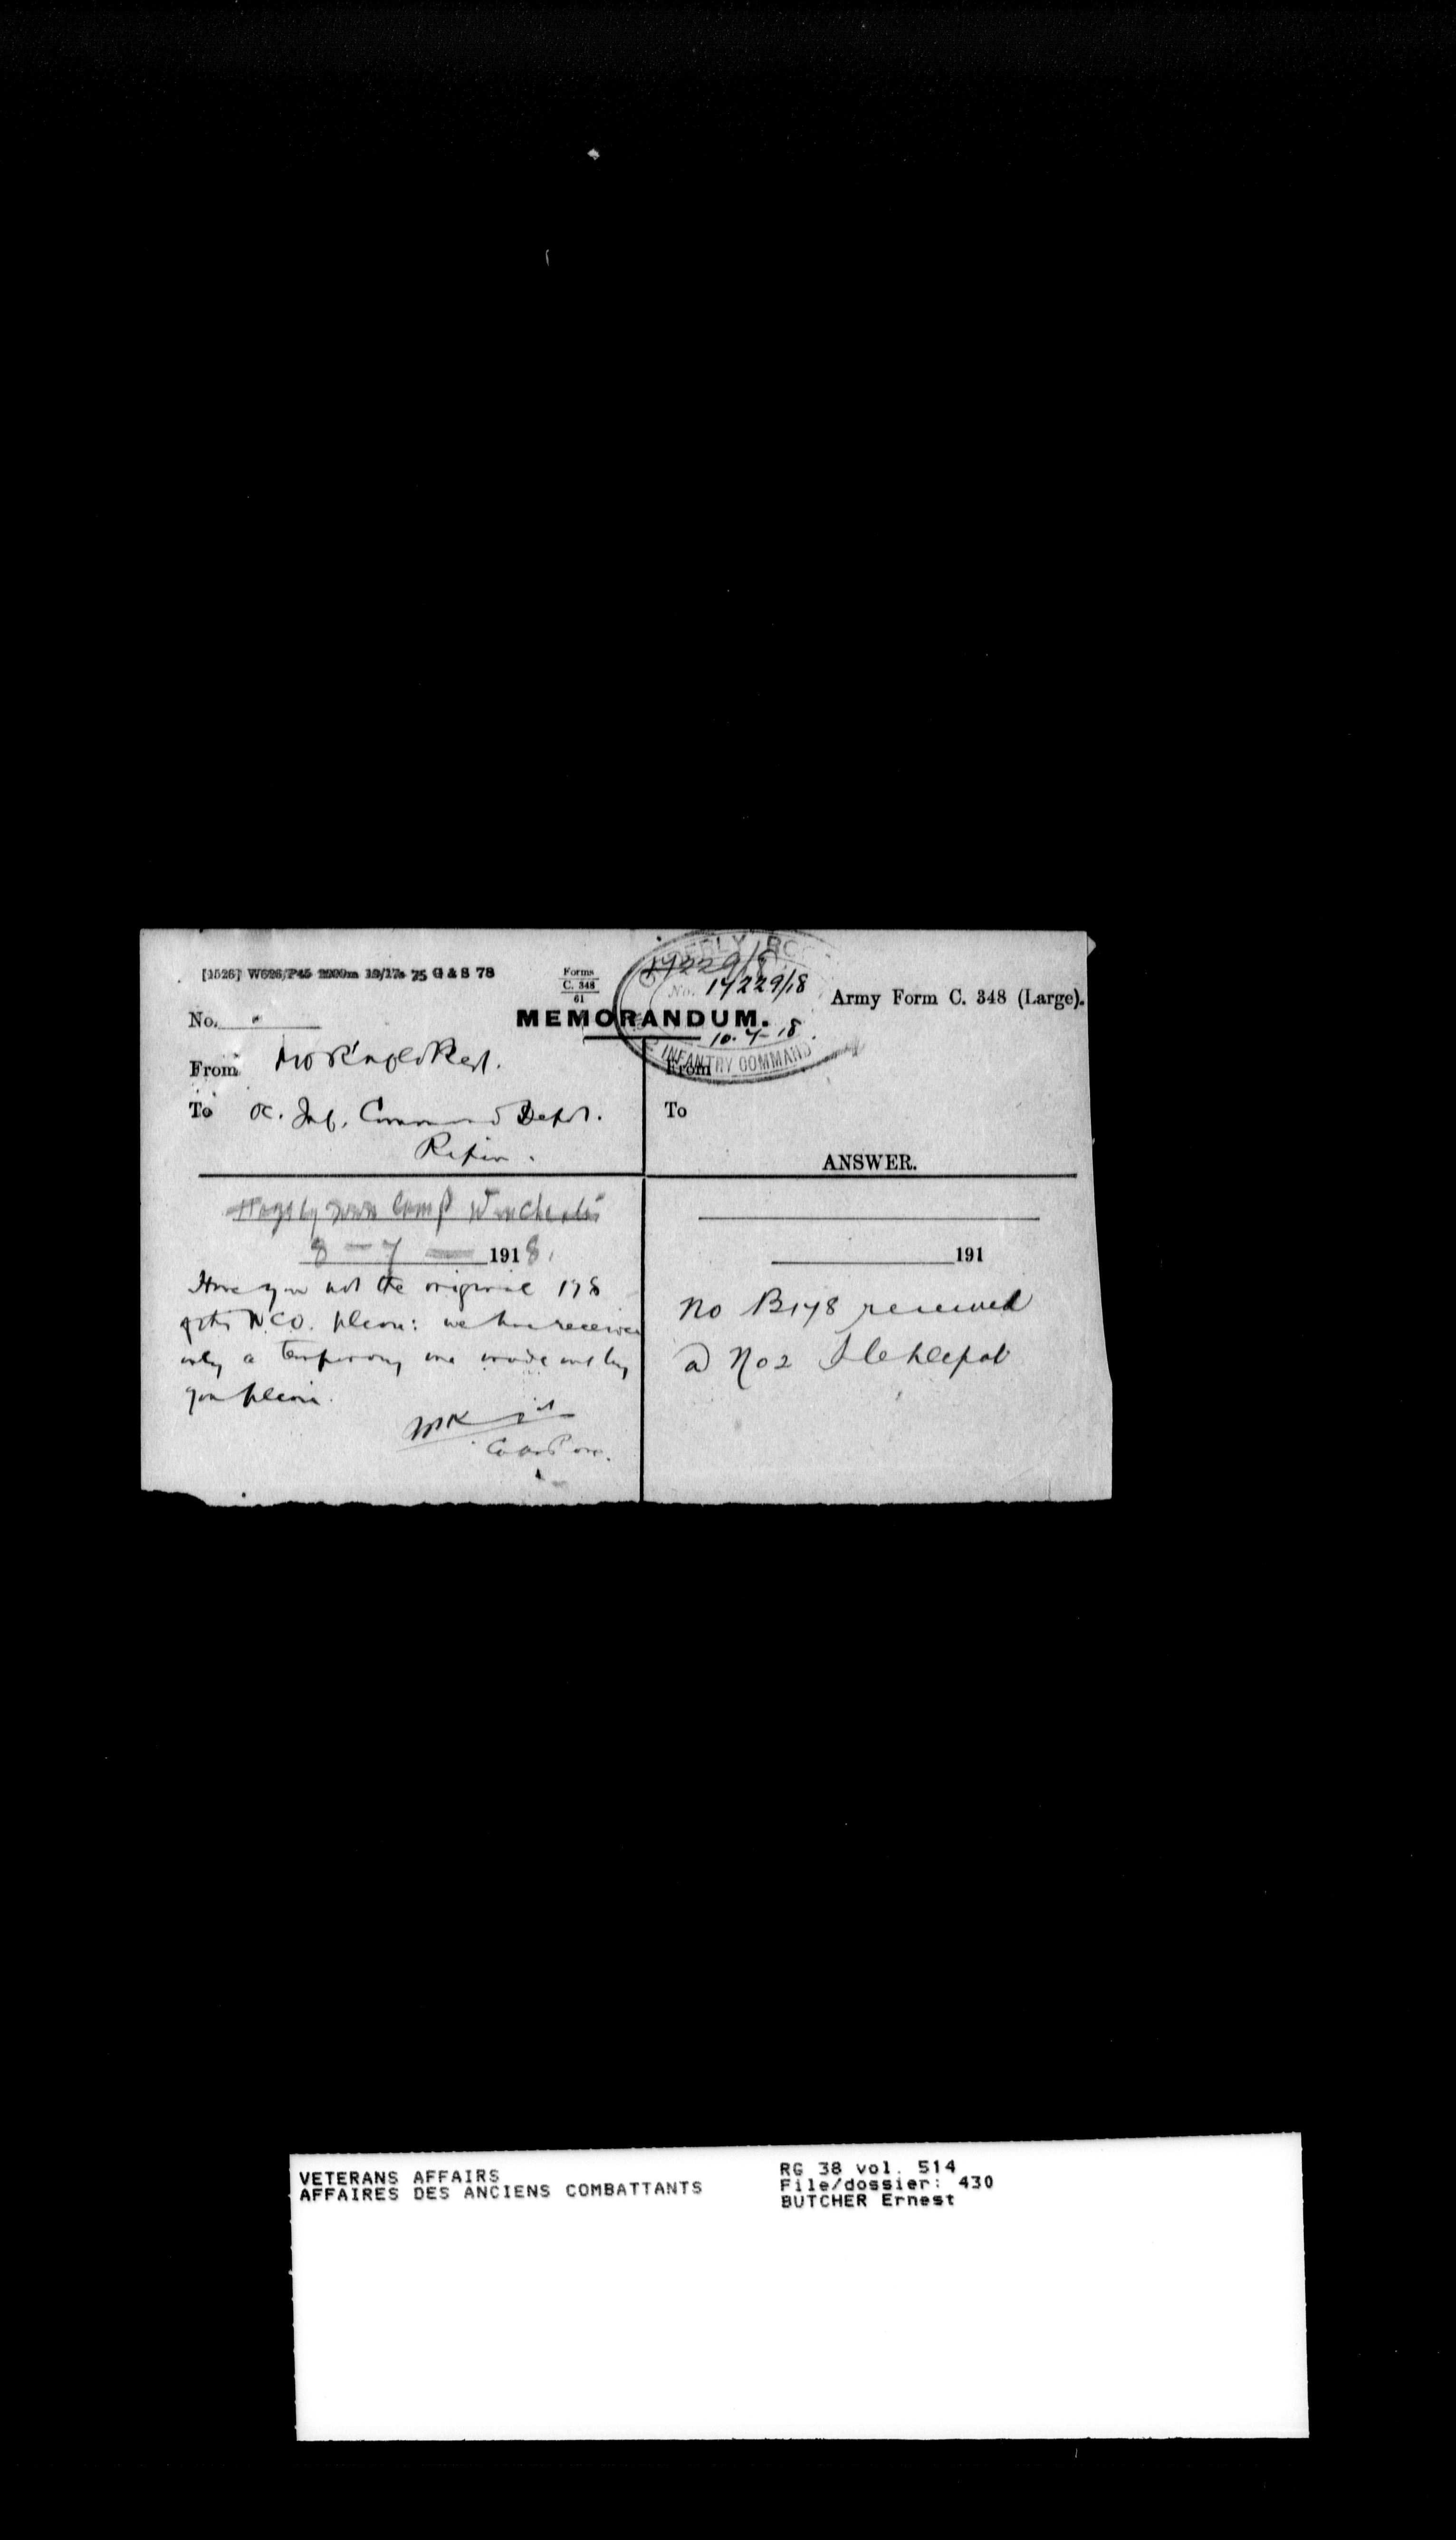 [1526] W626/P45 2000m 12/17s 75 G & S 78
Forms
C. 348
61
ORDERLY RO
17229/8
No. 17229/18
10.7.18
INFANTRY COMMAND
Army Form C. 348 (Large).
No.
MEMORANDUM.
From
To O.C. Inf. Command Depot.
Ripon.
Down Camp Winchester
8 - 7 - 1918.
Have you not the original 178
of this N.C.O. please: we have received
only a temporary one made out by
you please.
From
To
ANSWER.
191
No B178 received
@ No 2
VETERANS AFFAIRS
AFFAIRES DES ANCIENS COMBATTANTS
RG 38 vol. 514
File/dossier: 430
BUTCHER Ernest